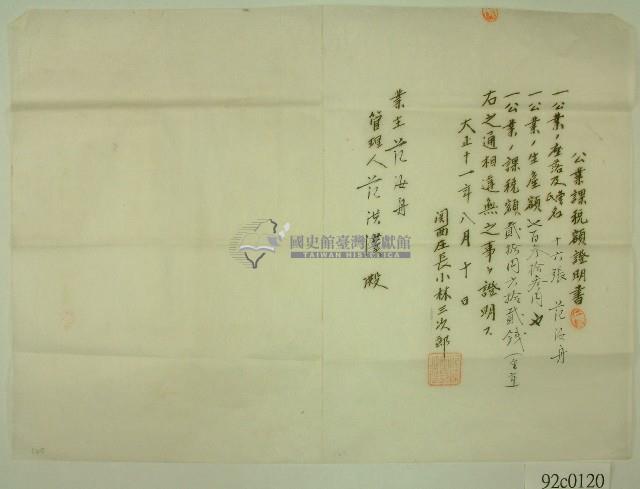 公業課税額證明書
一公業ノ座落及嘗名 十六張 范汝舟
一公業ノ生産額 七百参拾参円也
一公業ノ課税額 貳拾円六拾貳錢
右之通相違無之事ヲ證明ス
大正十一年八月十日
関西庄長小林三次郎
業主 范汝舟
管理人 范洪 殿
國史館臺灣文獻館
TAIWAN HISTORICA
92c0120